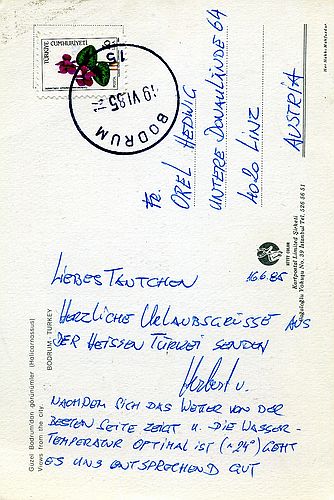 TÜRKİYE CUMHURİYETİ
19.VI.85
15
BODRUM
Fr.
OREL HEDWIG
UNTERE DONAULÄNDE 64
4020 LINZ
AUSTRIA
LIEBES TANTCHEN
16.6.85
HERZLICHE URLAUBSGRÜSSE AUS
DER HEISSEN TÜRKEI SENDEN
Herbert u.
NACHDEM SICH DAS WETTER VON DER
BESTEN SEITE ZEIGT U. DIE WASSER-
TEMPERATUR OPTIMAL IST (~24°) GEHT
ES UNS ENTSPRECHEND GUT
BODRUM - TURKEY
Güzel Bodrum'dan görünümler (Halicarnassus)
Views from the city.
KEYF COLOR
Kartpostal Limited Şirketi
No. 39 İstanbul Tel. 526 56 51